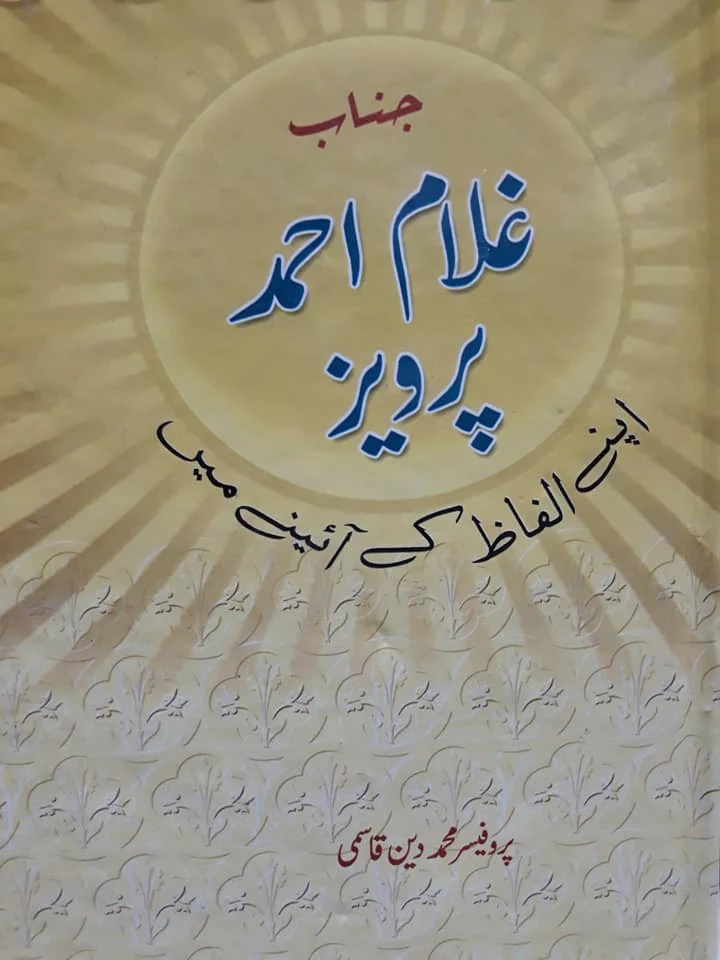 جناب
غلام احمد
پرویز
اپنے الفاظ کے آئینے میں
پروفیسر محمد دین قاسمی